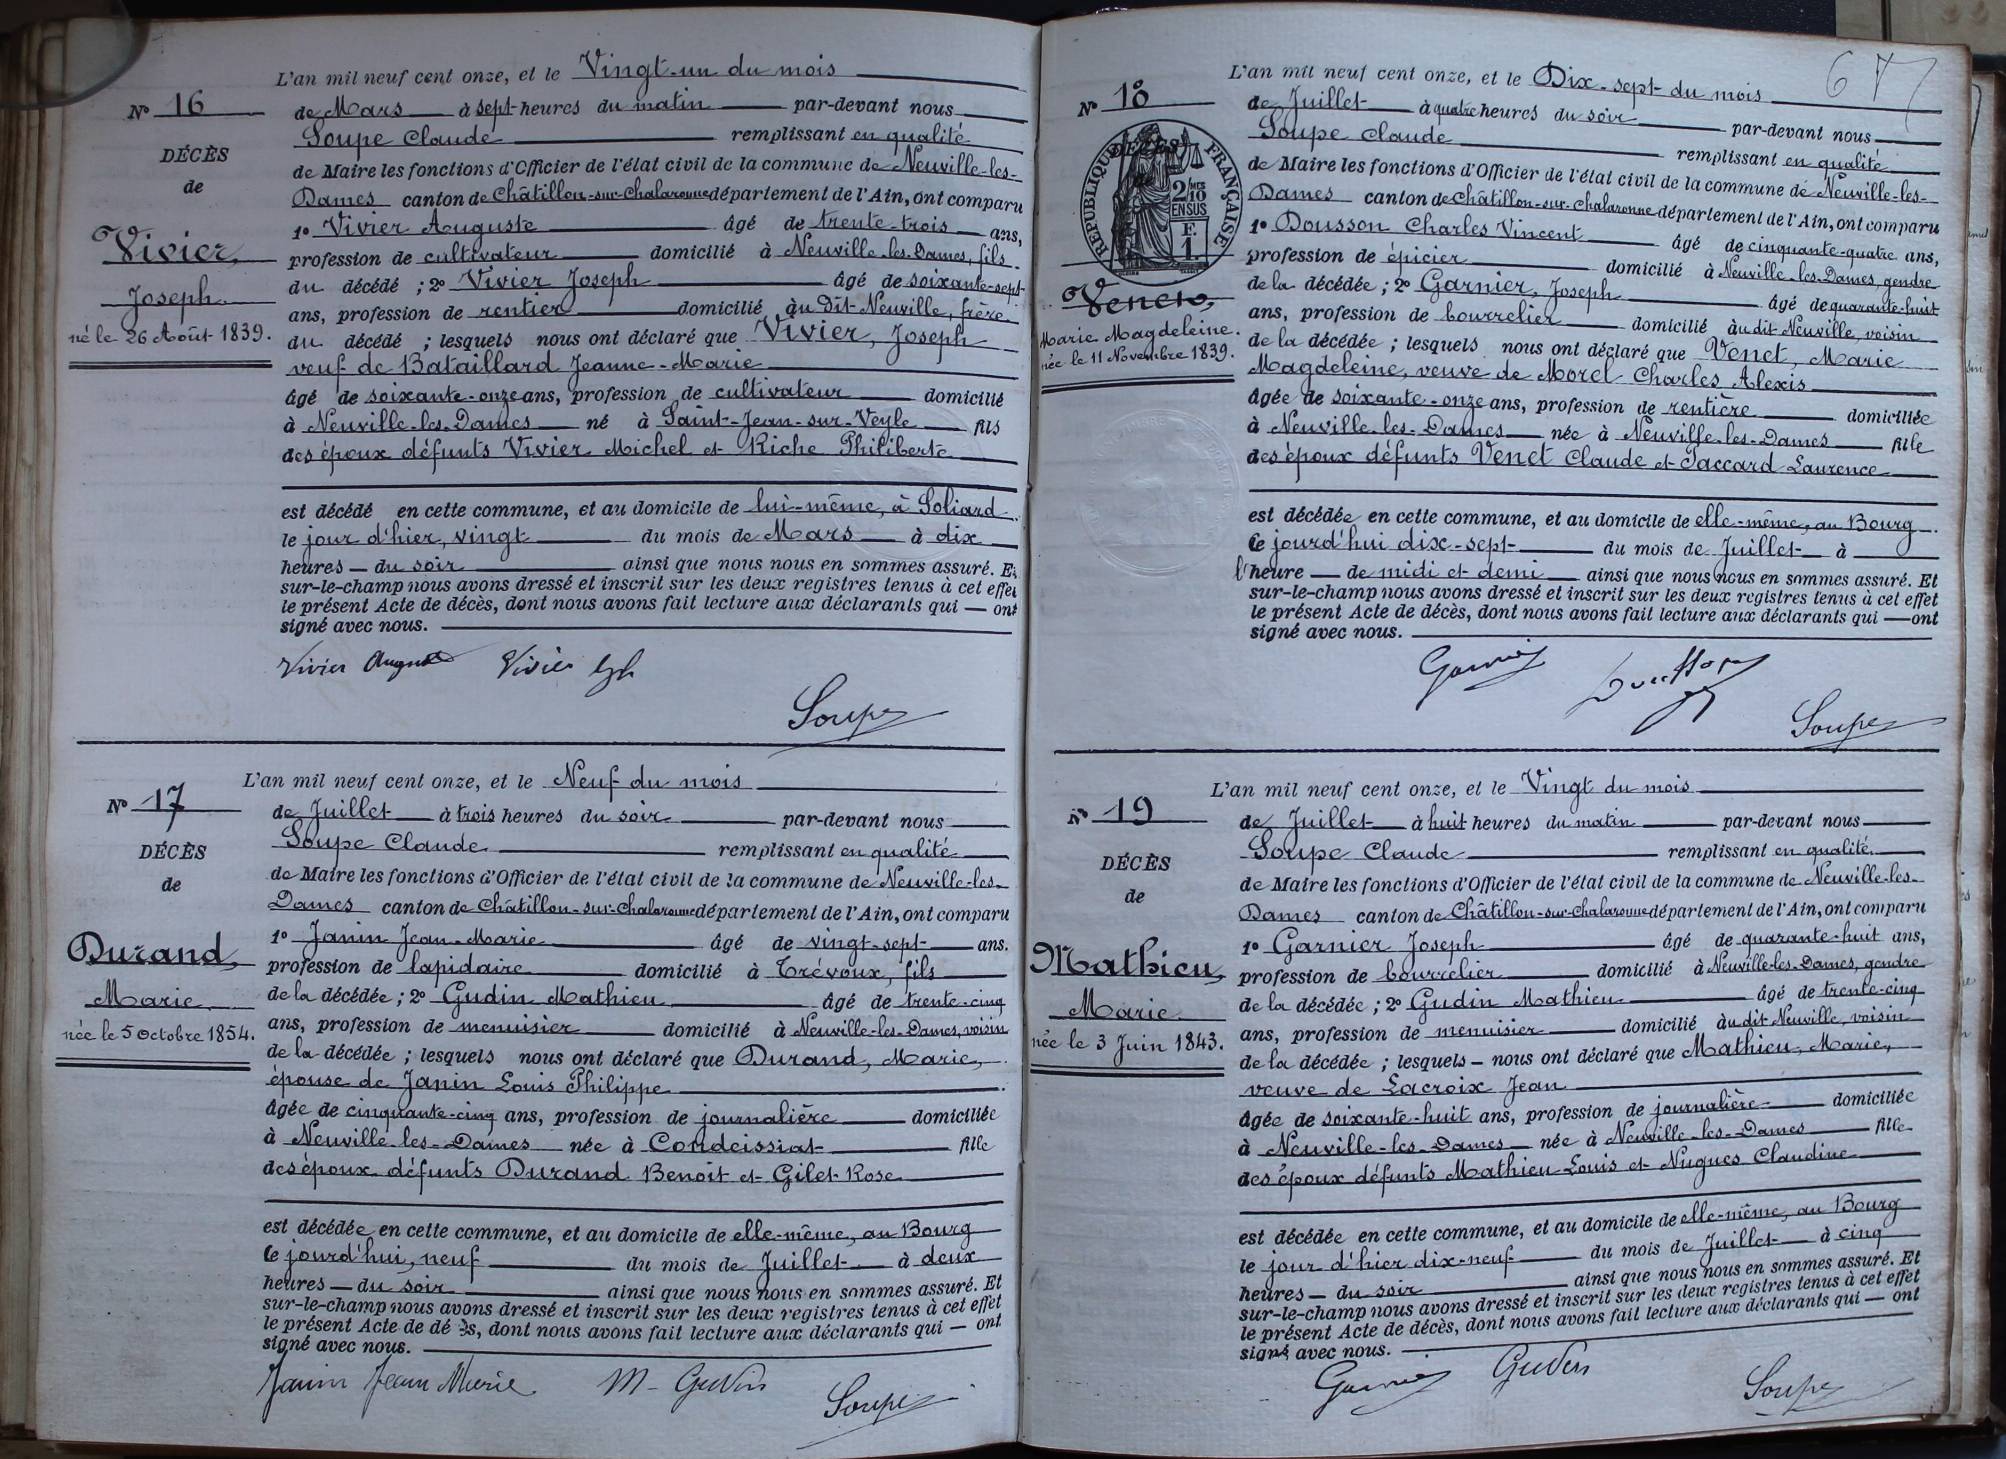 L'an mil neuf cent onze, et le Vingt-un du mois
N° 16
de Mars à sept heures du matin par-devant nous
Soupe Claude remplissant en qualité
DÉCÈS
de
de Maire les fonctions d'Officier de l'état civil de la commune de Neuville-les-
Dames canton de Châtillon-sur-Chalaronne département de l'Ain, ont comparu
Vivier,
Joseph
né le 26 Août 1839.
1° Vivier Auguste âgé de trente-trois ans,
profession de cultivateur domicilié à Neuville-les-Dames, fils
du décédé ; 2° Vivier Joseph âgé de soixante-sept
ans, profession de rentier domicilié àu dit Neuville, frère
du décédé ; lesquels nous ont déclaré que Vivier, Joseph
veuf de Bataillard Jeanne-Marie
âgé de soixante-onze ans, profession de cultivateur domicilié
à Neuville-les-Dames né à Saint-Jean-sur-Veyle fils
des époux défunts Vivier Michel et Riche Philiberte
est décédé en cette commune, et au domicile de lui-même, à Soliard
le jour d'hier, vingt du mois de Mars à dix
heures du soir ainsi que nous nous en sommes assuré. Et
sur-le-champ nous avons dressé et inscrit sur les deux registres tenus à cet effet
le présent Acte de décès, dont nous avons fait lecture aux déclarants qui ont
signé avec nous.
Vivier Auguste Vivier Jph
Soupe
L'an mil neuf cent onze, et le Neuf du mois
N° 17
de Juillet à trois heures du soir par-devant nous
Soupe Claude remplissant en qualité
DÉCÈS
de
de Maire les fonctions d'Officier de l'état civil de la commune de Neuville-les-
Dames canton de Châtillon-sur-Chalaronne département de l'Ain, ont comparu
Durand,
Marie
née le 5 Octobre 1854.
1° Janin Jean-Marie âgé de vingt-sept ans.
profession de lapidaire domicilié à Trévoux, fils
de la décédée ; 2° Gudin Mathieu âgé de trente-cinq
ans, profession de menuisier domicilié à Neuville-les-Dames, voisin
de la décédée ; lesquels nous ont déclaré que Durand, Marie,
épouse de Janin Louis Philippe
âgée de cinquante-cinq ans, profession de journalière domiciliée
à Neuville-les-Dames née à Condeissiat fille
des époux défunts Durand Benoit et Gilet Rose
est décédée en cette commune, et au domicile de elle-même, au Bourg
ce jourd'hui, neuf du mois de Juillet à deux
heures du soir ainsi que nous nous en sommes assuré. Et
sur-le-champ nous avons dressé et inscrit sur les deux registres tenus à cet effet
le présent Acte de dé ès, dont nous avons fait lecture aux déclarants qui ont
signé avec nous.
Janin Jean Marie M. Gudin
Soupe
67
L'an mil neuf cent onze, et le Dix-sept du mois
N° 18
de Juillet à quatre heures du soir par-devant nous
Soupe Claude remplissant en qualité
DÉCÈS
RÉPUBLIQUE FRANÇAISE
2/10 EN SUS
F. 1.
de Maire les fonctions d'Officier de l'état civil de la commune de Neuville-les-
Dames canton de Châtillon-sur-Chalaronne département de l'Ain, ont comparu
Venet,
Marie Magdeleine.
née le 11 Novembre 1839.
1° Dousson Charles Vincent âgé de cinquante-quatre ans,
profession de épicier domicilié à Neuville-les-Dames, gendre
de la décédée ; 2° Garnier, Joseph âgé de quarante-huit
ans, profession de bourrelier domicilié àu dit Neuville, voisin
de la décédée ; lesquels nous ont déclaré que Venet, Marie
Magdeleine, veuve de Morel Charles Alexis
âgée de soixante-onze ans, profession de rentière domiciliée
à Neuville-les-Dames née à Neuville-les-Dames fille
des époux défunts Venet Claude et Jaccard Laurence
est décédée en cette commune, et au domicile de elle-même, au Bourg
ce jourd'hui dix-sept du mois de Juillet à
l'heure de midi et demi ainsi que nous nous en sommes assuré. Et
sur-le-champ nous avons dressé et inscrit sur les deux registres tenus à cet effet
le présent Acte de décès, dont nous avons fait lecture aux déclarants qui ont
signé avec nous.
Garnier
Soupe
L'an mil neuf cent onze, et le Vingt du mois
N° 19
de Juillet à huit heures du matin par-devant nous
Soupe Claude remplissant en qualité
DÉCÈS
de
de Maire les fonctions d'Officier de l'état civil de la commune de Neuville-les-
Dames canton de Châtillon-sur-Chalaronne département de l'Ain, ont comparu
Mathieu,
Marie
née le 3 Juin 1843.
1° Garnier Joseph âgé de quarante-huit ans,
profession de bourrelier domicilié à Neuville-les-Dames, gendre
de la décédée ; 2° Gudin Mathieu âgé de trente-cinq
ans, profession de menuisier domicilié àu dit Neuville, voisin
de la décédée ; lesquels nous ont déclaré que Mathieu, Marie,
veuve de Lacroix Jean
âgée de soixante-huit ans, profession de journalière domiciliée
à Neuville-les-Dames née à Neuville-les-Dames fille
des époux défunts Mathieu Louis et Nugues Claudine
est décédée en cette commune, et au domicile de elle-même, au Bourg
le jour d'hier dix-neuf du mois de Juillet à cinq
heures du soir ainsi que nous nous en sommes assuré. Et
sur-le-champ nous avons dressé et inscrit sur les deux registres tenus à cet effet
le présent Acte de décès, dont nous avons fait lecture aux déclarants qui ont
signé avec nous.
Garnier Gudin
Soupe